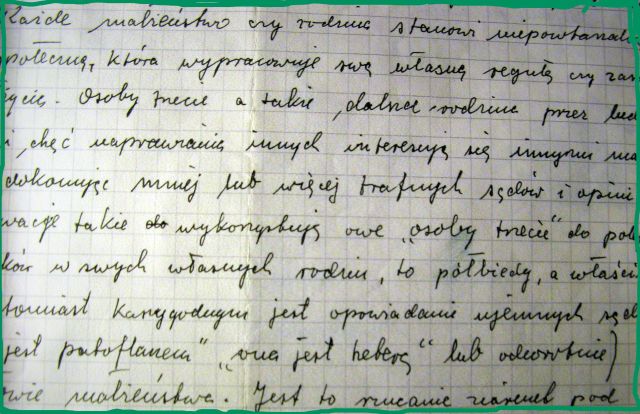 Każde małżeństwo czy rodzina stanowi niepowtarzal
połeczną, która wypracowuje swą własną regułę czy zas
życia. Osoby trzecie a także "dalsza" rodzina przez lud
i chęć naprawiania innych interesują się innymi ma
dokonując mniej lub więcej trafnych sądów i opini
wacje takie do wykorzystują owe "osoby trzecie" do pot
ków w swych własnych rodzin, to półbiedy, a właści
tomiast karygodnym jest opowiadanie ujemnych sąd
jest pantoflarzem" "ona jest heterą" lub odwrotnie)
twie małżeństwa. Jest to rzucanie ziarenek pod